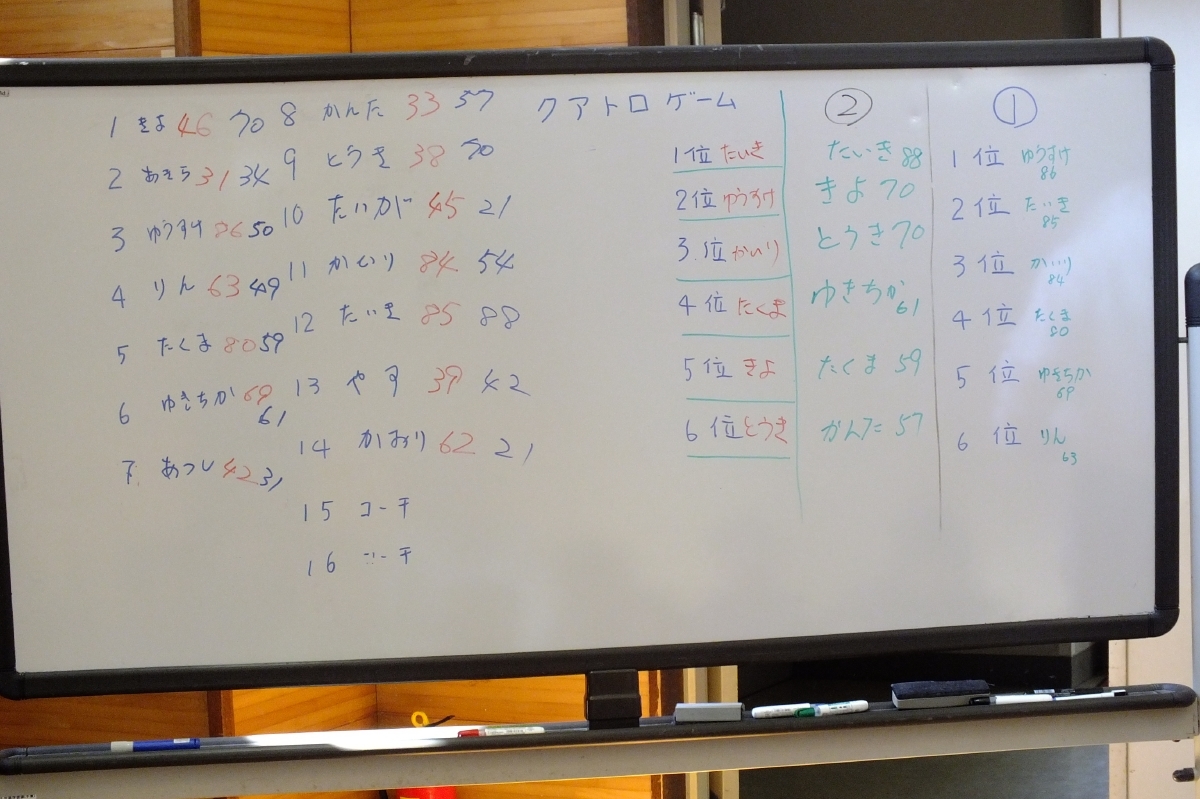 1 きよ 46 70
2 あきら 31 34
3 ゆうすけ 86 50
4 りん 63 49
5 たくま 80 59
6 ゆきちか 69
61
7 あつし 42 31
8 かんた 33 57
9 とうき 38 70
10 たいが 45 21
11 かいり 84 54
12 たいき 85 88
13 やす 39 42
14 かおり 62 21
15 コーチ
16 コーチ
クアトロゲーム
1位 たいき
2位 ゆうすけ
3位 かいり
4位 たくま
5位 きよ
6位 とうき
②
たいき 88
きよ 70
とうき 70
ゆきちか
61
たくま 59
かんた 57
①
1位 ゆうすけ
86
2位 たいき
85
3位 かいり
84
4位 たくま
80
5位 ゆきちか
69
6位 りん
63